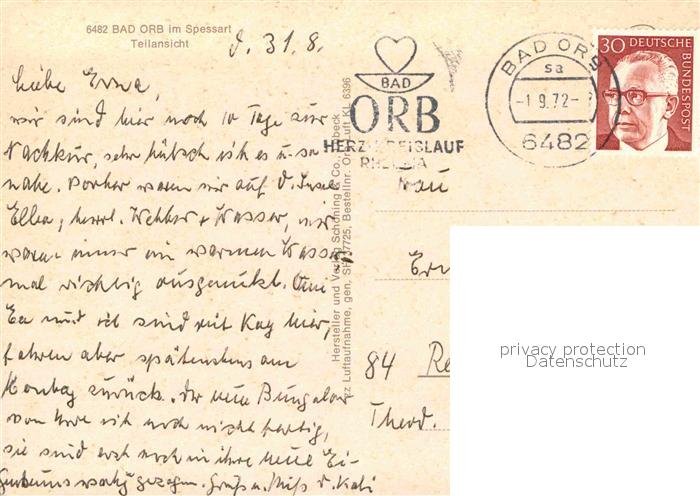 6482 BAD ORB im Spessart
Teilansicht
d. 31.8.
Liebe Erna,
wir sind hier noch 10 Tage zur
Nachkur, sehr hübsch ist es u. so
nahe. Vorher waren wir auf d. Insel
Elba, herrl. Wetter + Wasser, wir
waren immer im warmen Wasser
mal richtig ausgeruht.
Ea und ich sind mit Kay hier,
fahren aber spätestens am
Montag zurück. Der neue Bungalow
von Uwe ist noch nicht fertig,
sie sind erst noch in ihre neue Ei-
gentumswohg gezogen. Gruß u. Kuß v. Kati
BAD
ORB
HERZ-KREISLAUF
RHEUMA
BAD ORB
sa
-1.9.72-
6482
30 DEUTSCHE
BUNDESPOST
Hersteller und Verlag Schöning & Co., Lübeck
gen. SH 07725, Bestellnr. Orb Luft KL 6396
Frau
84 Re
Theod.
privacy protection
Datenschutz